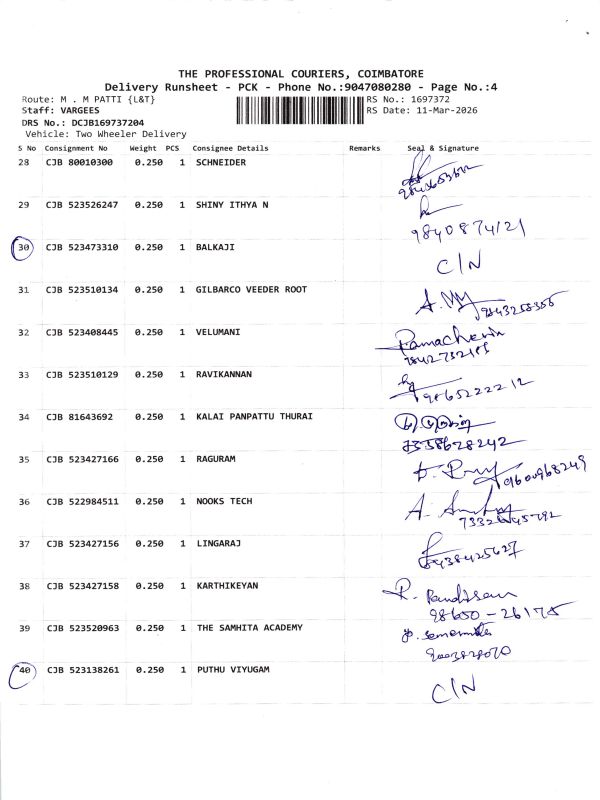 THE PROFESSIONAL COURIERS, COIMBATORE
Delivery Runsheet - PCK - Phone No.:9047080280 - Page No.:4
Route: M . M PATTI {L&T} RS No.: 1697372
Staff: VARGEES RS Date: 11-Mar-2026
DRS No.: DCJB169737204
Vehicle: Two Wheeler Delivery
S No Consignment No Weight PCS Consignee Details Remarks Seal & Signature
28 CJB 80010300 0.250 1 SCHNEIDER
29 CJB 523526247 0.250 1 SHINY ITHYA N
9840874121
30 CJB 523473310 0.250 1 BALKAJI
C/N
31 CJB 523510134 0.250 1 GILBARCO VEEDER ROOT
32 CJB 523408445 0.250 1 VELUMANI
33 CJB 523510129 0.250 1 RAVIKANNAN
34 CJB 81643692 0.250 1 KALAI PANPATTU THURAI
35 CJB 523427166 0.250 1 RAGURAM
9600968249
36 CJB 522984511 0.250 1 NOOKS TECH
37 CJB 523427156 0.250 1 LINGARAJ
38 CJB 523427158 0.250 1 KARTHIKEYAN
98650-26175
39 CJB 523520963 0.250 1 THE SAMHITA ACADEMY
40 CJB 523138261 0.250 1 PUTHU VIYUGAM
C/N